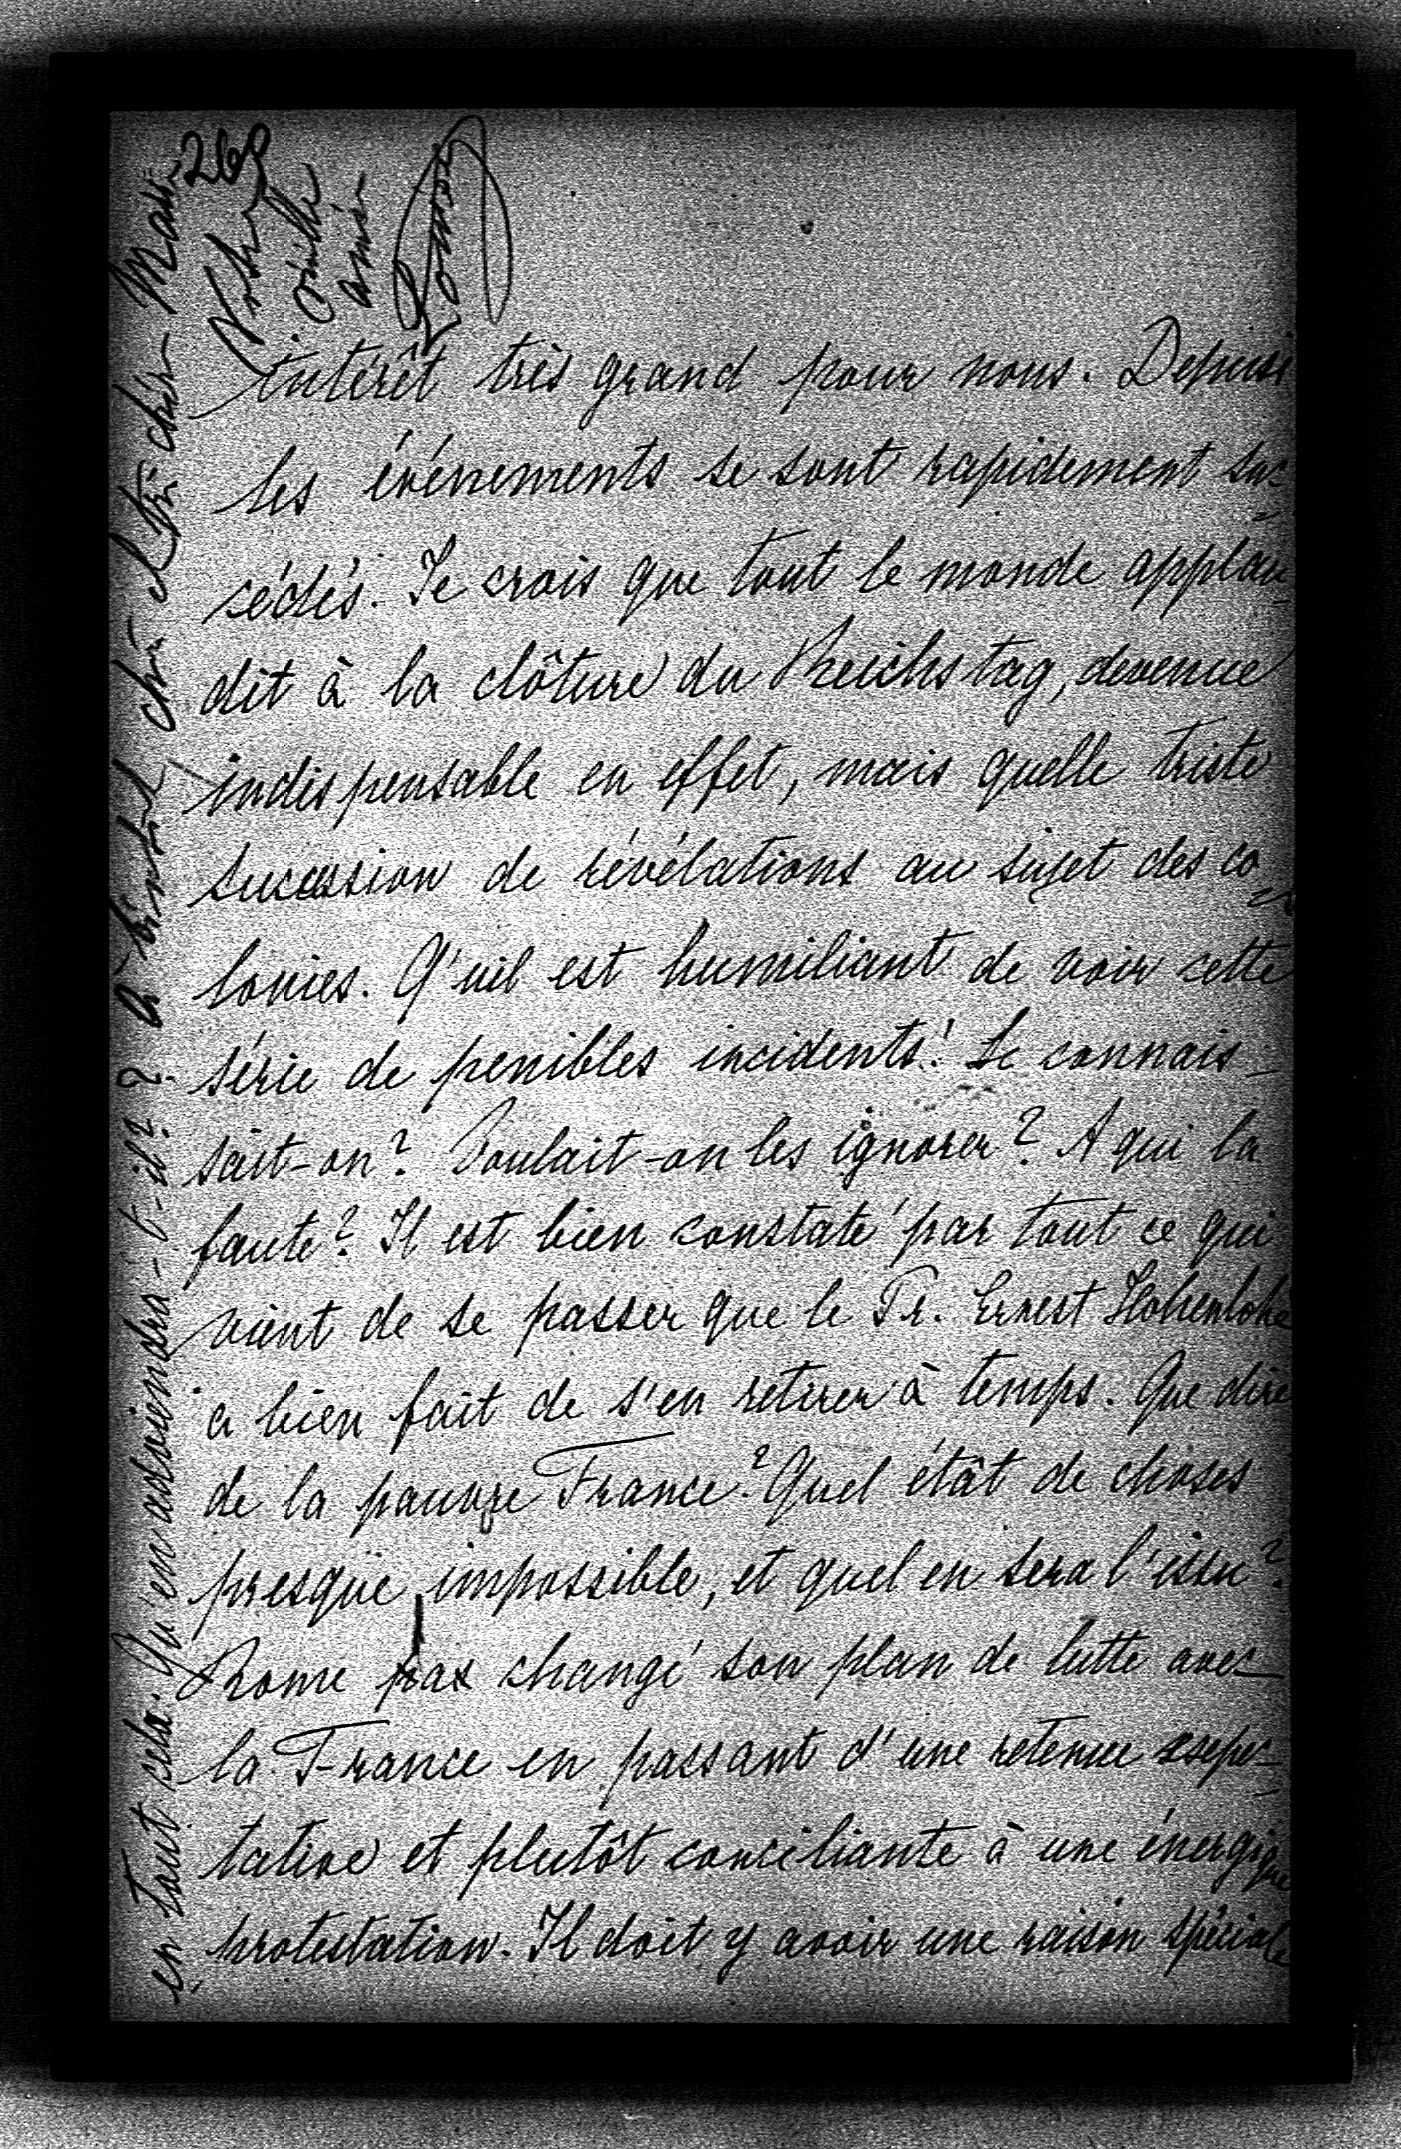 intérêt très grand pour nous. Depuis
les événements se sont rapidement suc-
cédés. Je crois que tout le monde applau-
dit à la clôture du Reichstag, devenue
indispensable en effet, mais quelle triste
sucession de révélations au sujet des co-
lonies. Q'uil est humiliant de voir cette
série de penibles incidents! Le connais-
sait-on? Voulait-on les ignorer? A qui la
faute? Il est bien constaté par tout ce qui
vient de se passer que le Pr. Ernest Hohenlohe
a bien fait de s'en retirer à temps. Que dire
de la pauvre France? Quel étât de choses
presque impossible, et quel en sera l'issu?
Rome a changé son plan de lutte avec
la France en passant d'une retenue exspec-
tative et plutôt conciliante à une énergique
protestation. Il doit y avoir une raison spéciale
en tout cela. Qu'en adviendra-t-il? ? À bientôt cher et très cher
Votre
vieille
amie